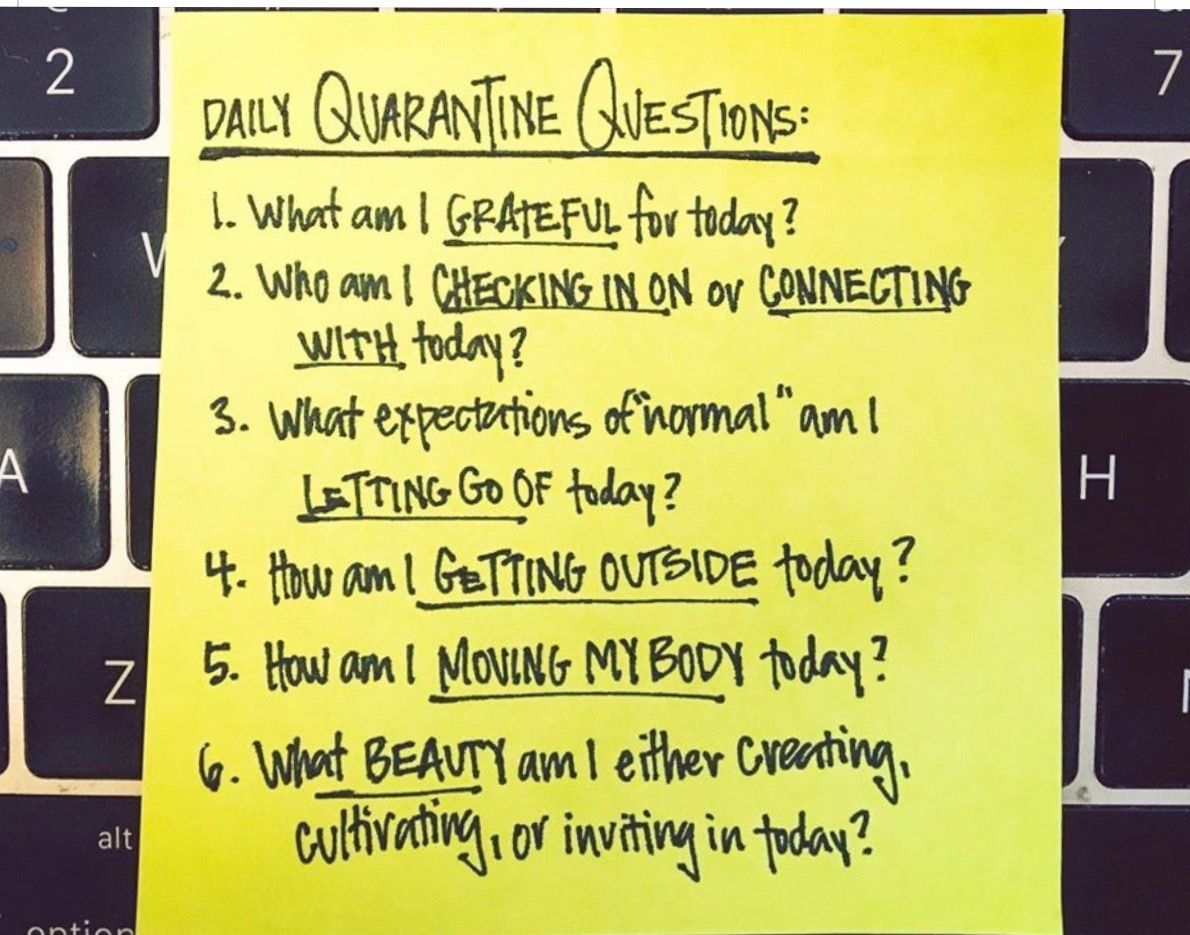 2
7
DAILY QUARANTINE QUESTIONS:
1. What am I GRATEFUL for today?
W
2. Who am I CHECKING IN ON or CONNECTING
WITH today?
3. What expectations of "normal" am I
A
H
LETTING GO OF today?
4. How am I GETTING OUTSIDE today?
5. How am I MOVING MY BODY today?
Z
6. What BEAUTY am I either creating,
cultivating, or inviting in today?
alt
option